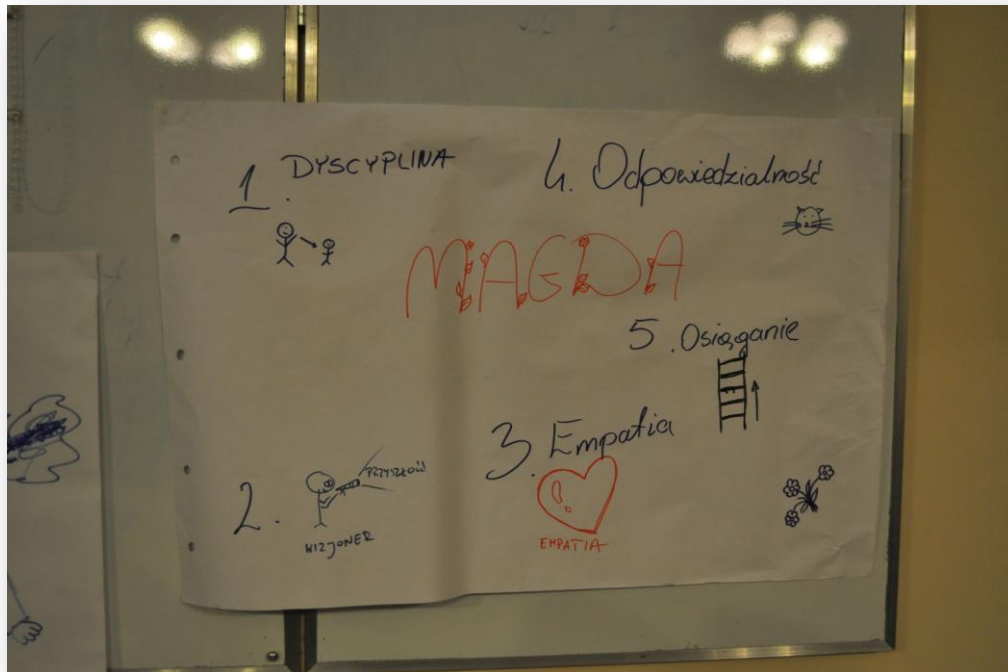 1. DYSCYPLINA
4. Odpowiedzialność
MAGDA
5. Osiąganie
3. Empatia
2.
PRZYSZŁOŚĆ
WIZJONER
EMPATIA